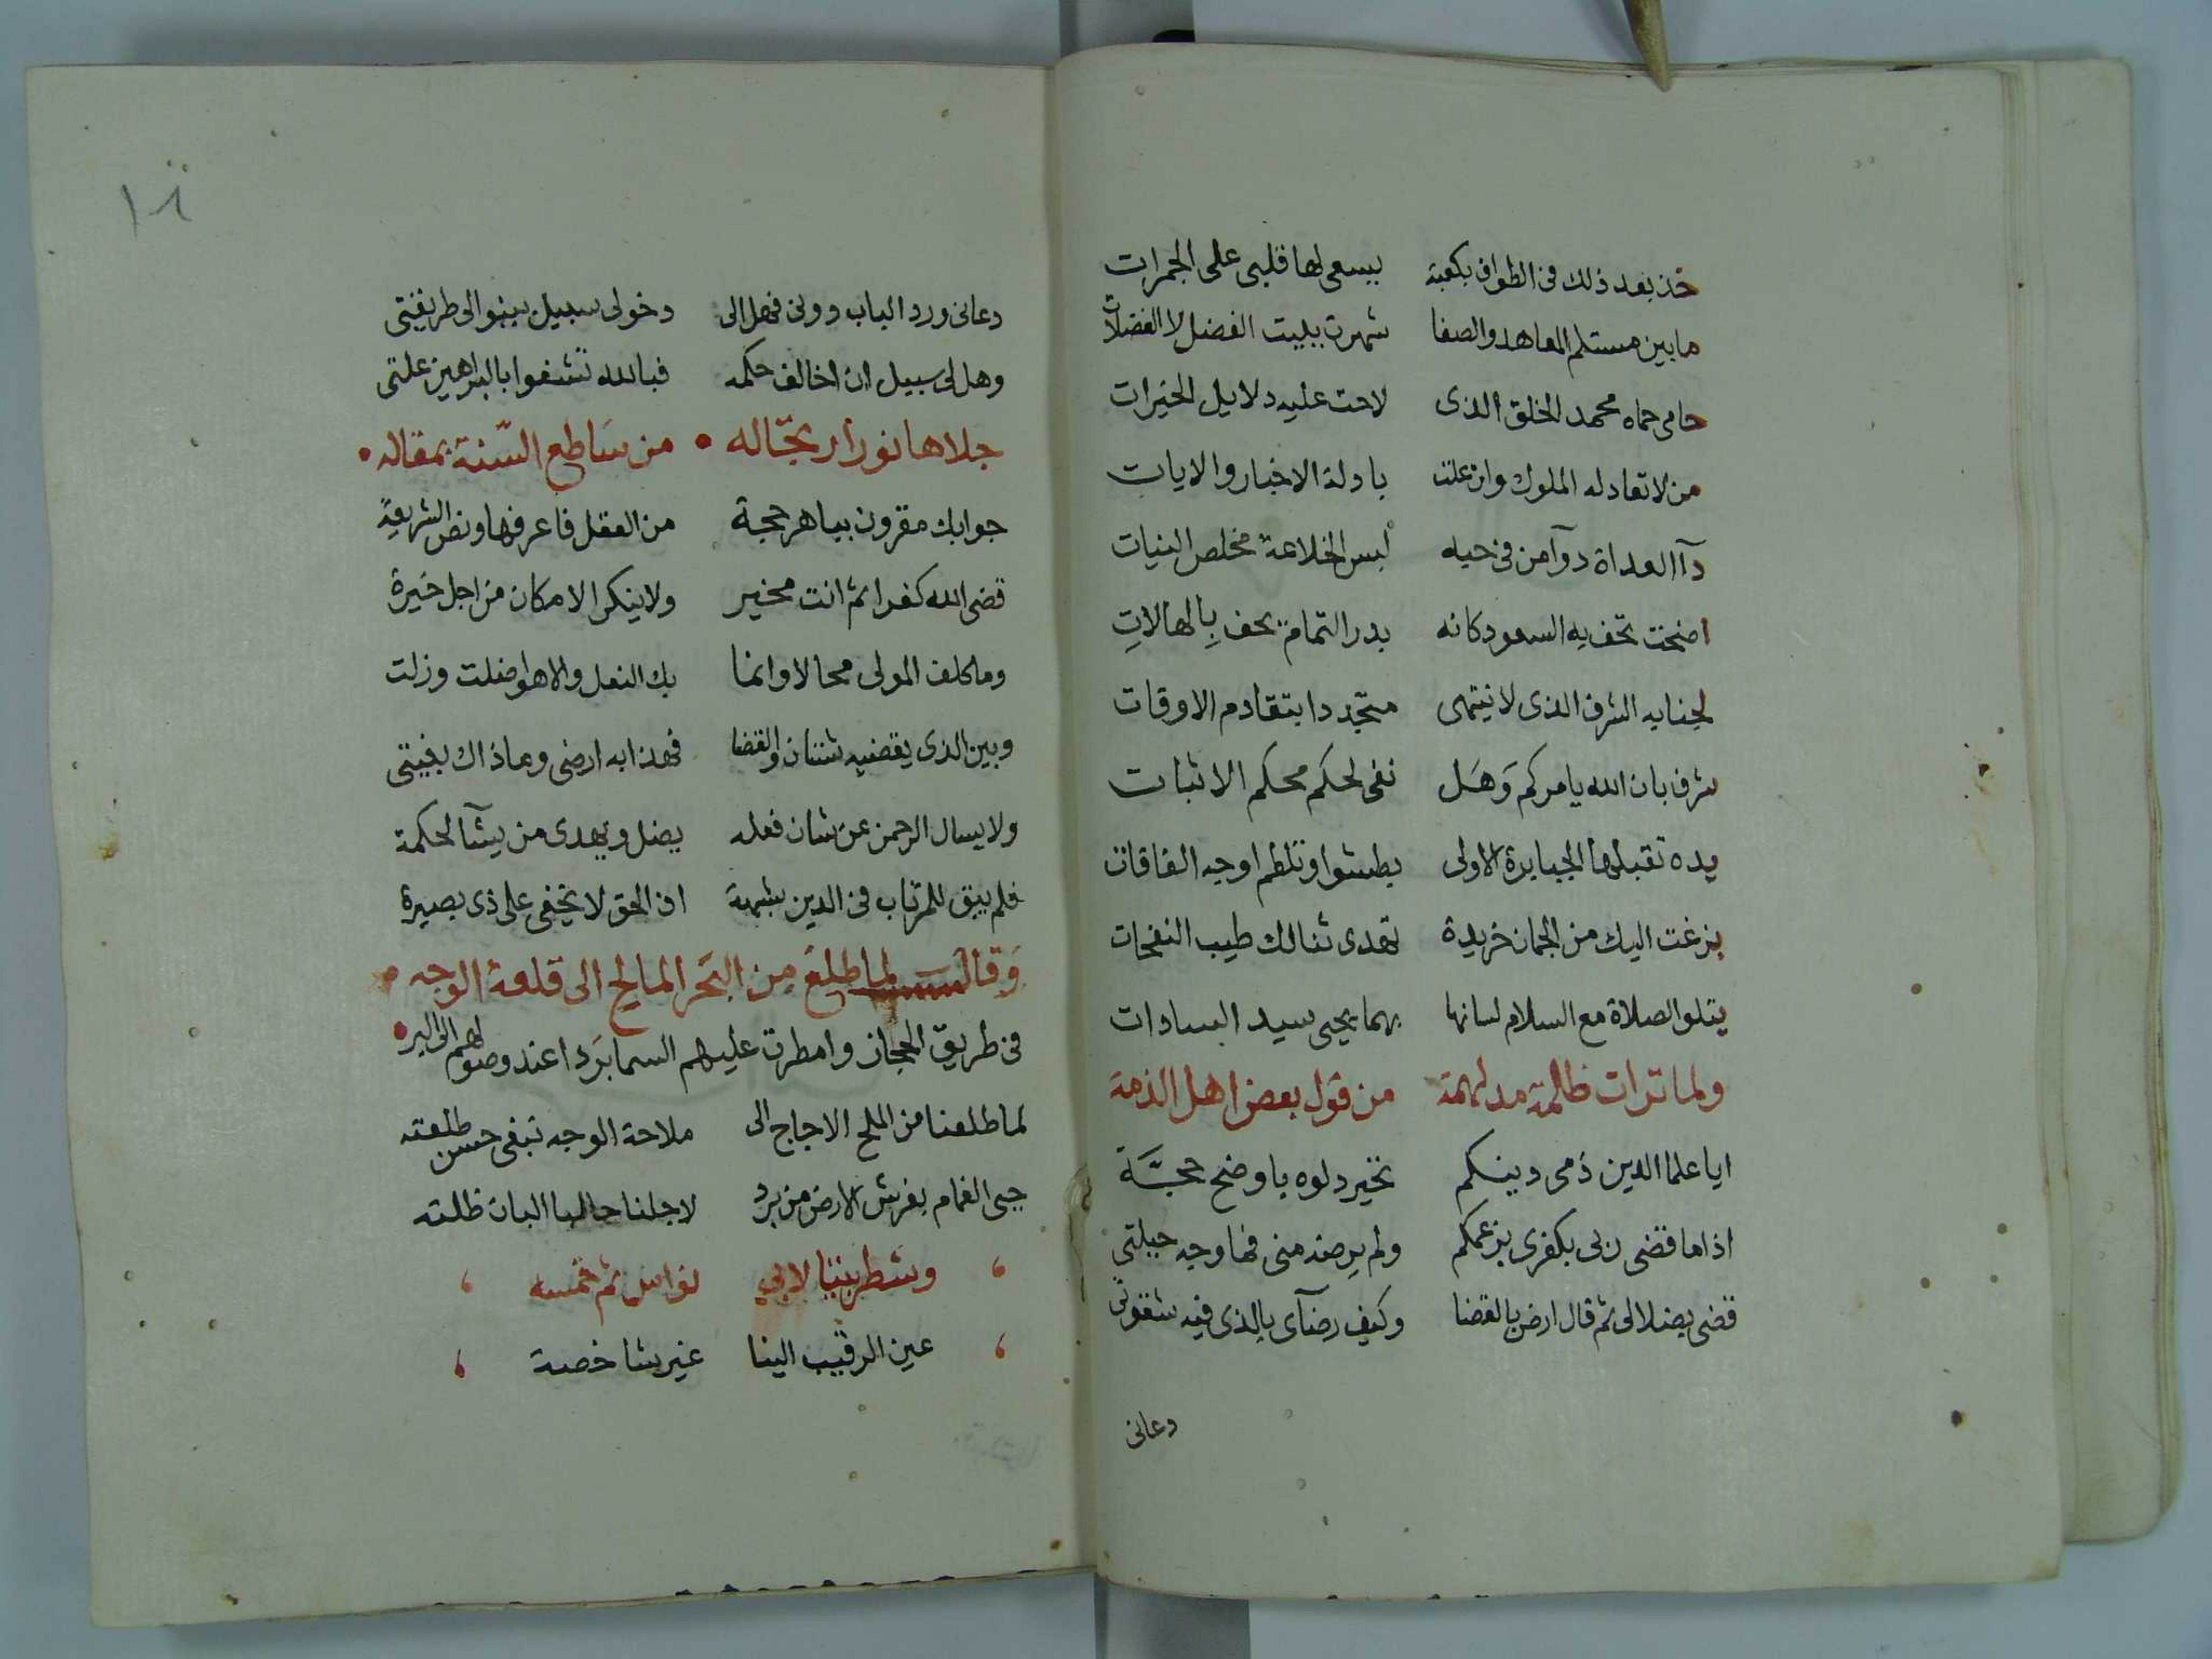 خذ بعد ذلك فى الطواف بكعبة يسعى لها قلبى على الجمرات
ما بين مستلم المعاهد والصفا شهرت ببيت الفضل لا الفضلات
حامى حماه محمد الخلق الذى لاحت عليه دلايل الخيرات
من لا تعادله الملوك وان علت بادلة الاخبار والايات
دآ العداة دوآ من فى حيه لبس الخلاعة مخلص النيات
اضحت تحف به السعود كانه بدر التمام يحف بِالهالاتِ
لجنابه الشرف الذى لا ينتهى متجددا بتقادم الاوقات
شرف بان الله يامركم وَهَل نفى لحكم محكم الاثبات
يده تقبلها الجبابرة الاولى بطشوا وتلطم اوجه الفاقات
بزغت اليك من الجمان خريدة تهدى ثنالك طيب النفحات
يتلو الصلاة مع السلام لسانها بهما يحيى سيد السادات
ولما تراات ظالمة مدلهمة من قول بعض اهل الذمة
ايا علما الدين ذمى دينكم تحير دلوه باوضح حجَّة
اذا ما قضى ربى بكفرى بزعمكم ولم يرضه منى فما وجه حيلتى
قضى بضلالى ثم قال ارض بالقضا وكيف رضآى بالذى فيه شقوتى
دعانى
١٨
دعانى ورد الباب دونى فهل الى دخولى سبيل بينوا لى طريقتى
وهل لى سبيل ان اخالف حكمه فبالله تشفوا بالبراهين علتى
جلاها نورا ريحاله • من سَاطع السّنة بمقاله •
جوابك مقرون بباهر حجة من العقل فاعرفها ونص الشريعة
قضى الله كفرا ثم انت مخير ولا ينكر الامكان من اجل خيرة
وما كلف المولى محالا وانما بك النعل والاهوا ضلت وزلت
وبين الذى يقضيه شتان والقضا فهذا به ارضى وما ذاك بغيتى
ولا يسال الرحمن عن شان فعله يضل ويهدى من يشآ لحكمة
فلم يبق للمرتاب فى الدين شبهة اذ الحق لا يخفى على ذى بصيرة
وَقال لما طلعَ من البَحر المالح الى قلعة الوجه •
فى طريق الحجاز وامطرت عليهم السما بَردا عند وصولهم الى البر •
لما طلعنا من الملح الاجاج الى ملاحة الوجه نبغى حسن طلعته
جى الغمام بفرش الارض من برد لاجلنا البان ظلته
وشطر بيتا لابي نواس ثم خمسه
عين الرقيب الينا غير شاخصة